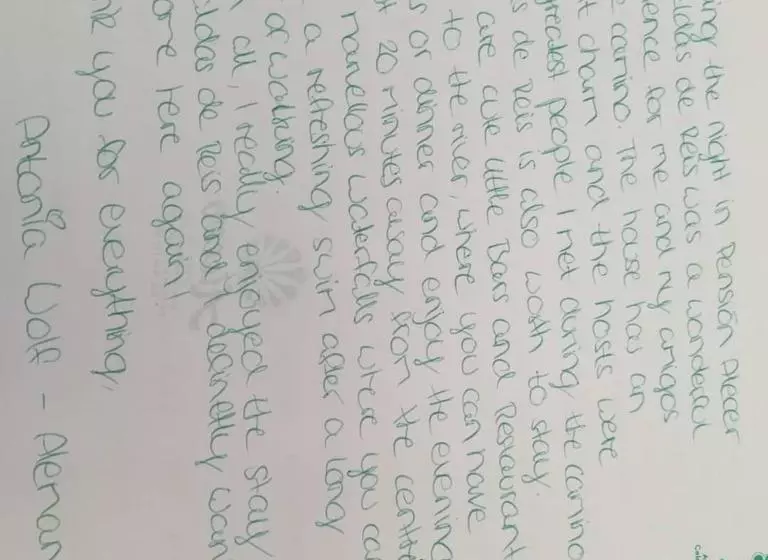 ing the night in Pensión Placer
ldas de Reis was a wonderful
ence for me and my amigos
e camino. The house has an
t charm and the hosts were
greatest people I met during the camino
s de Reis is also worth to stay.
are cute little Bars and Restaurant
to the river, where you can have
s or dinner and enjoy the evening
t 20 minutes away from the centre
marvellous waterfalls where you ca
a refreshing swim after a long
of walking.
all, I really enjoyed the stay
aldas de Reis and I deanetly wan
ome here again!
nk you for everything,
Antonia Wolf - Aleman